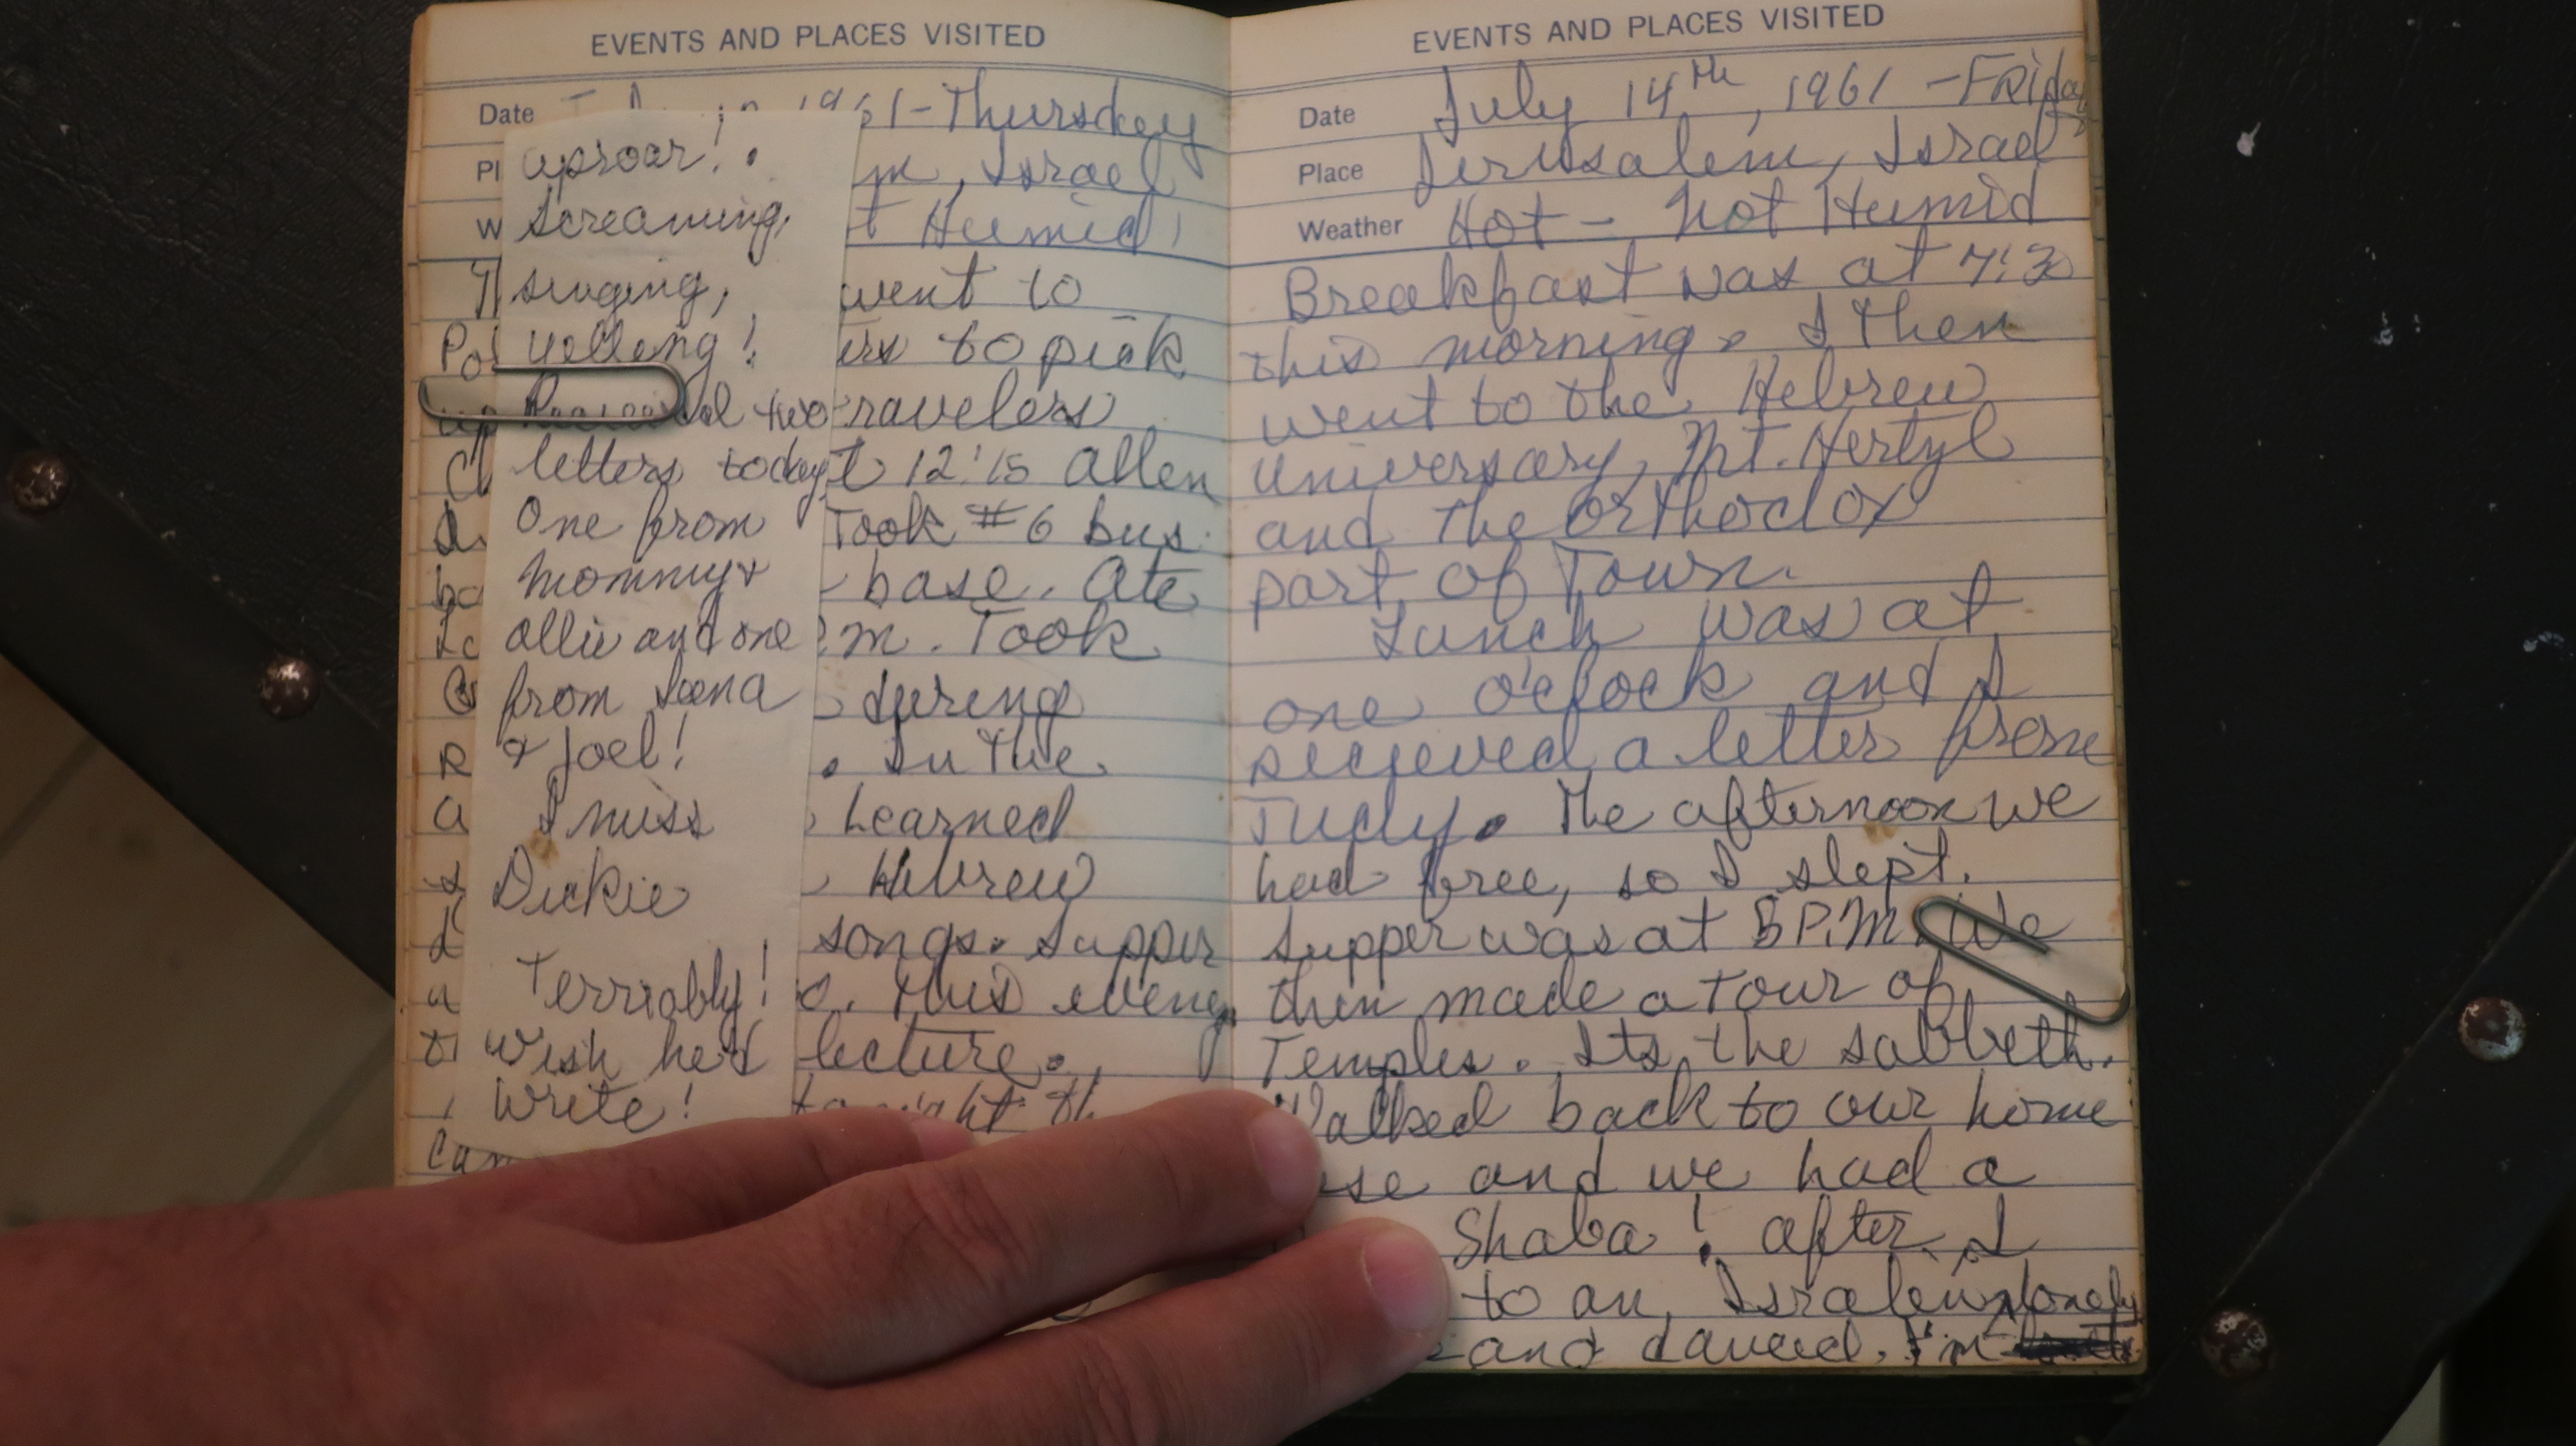 EVENTS AND PLACES VISITED
Date 1961-Thursday
Israel
Humid
went to
to pick
up travelers
12:15 Allen
Took #6 bus
base. Ate
m. Took
during
. In the
Learned
Hebrew
songs. Supper
This eveng
lecture.
tonight
uproar!
screaming,
singing,
yelling!
Recieved two
letters today
One from
mommy &
allie and one
from
& Joel!
I miss
Dickie
Terriably!
Wish he'd
write!
EVENTS AND PLACES VISITED
Date July 14th, 1961 -Friday
Place Jerusalem, Israel
Weather Hot - Not Humid
Breakfast was at 7:30
this morning. I then
went to the Hebrew
Universary, Mt. Hertzyl
and the orthodox
part of Town.
Lunch was at
one o'clock and I
recieved a letter from
Judy. The afternoon we
had free, so I slept.
Supper was at 5 P.M. We
then made a tour of
Temples. Its the sabbeth.
Walked back to our home
and we had a
Shaba! after I
to an Israelin
and danced. I'm lonely